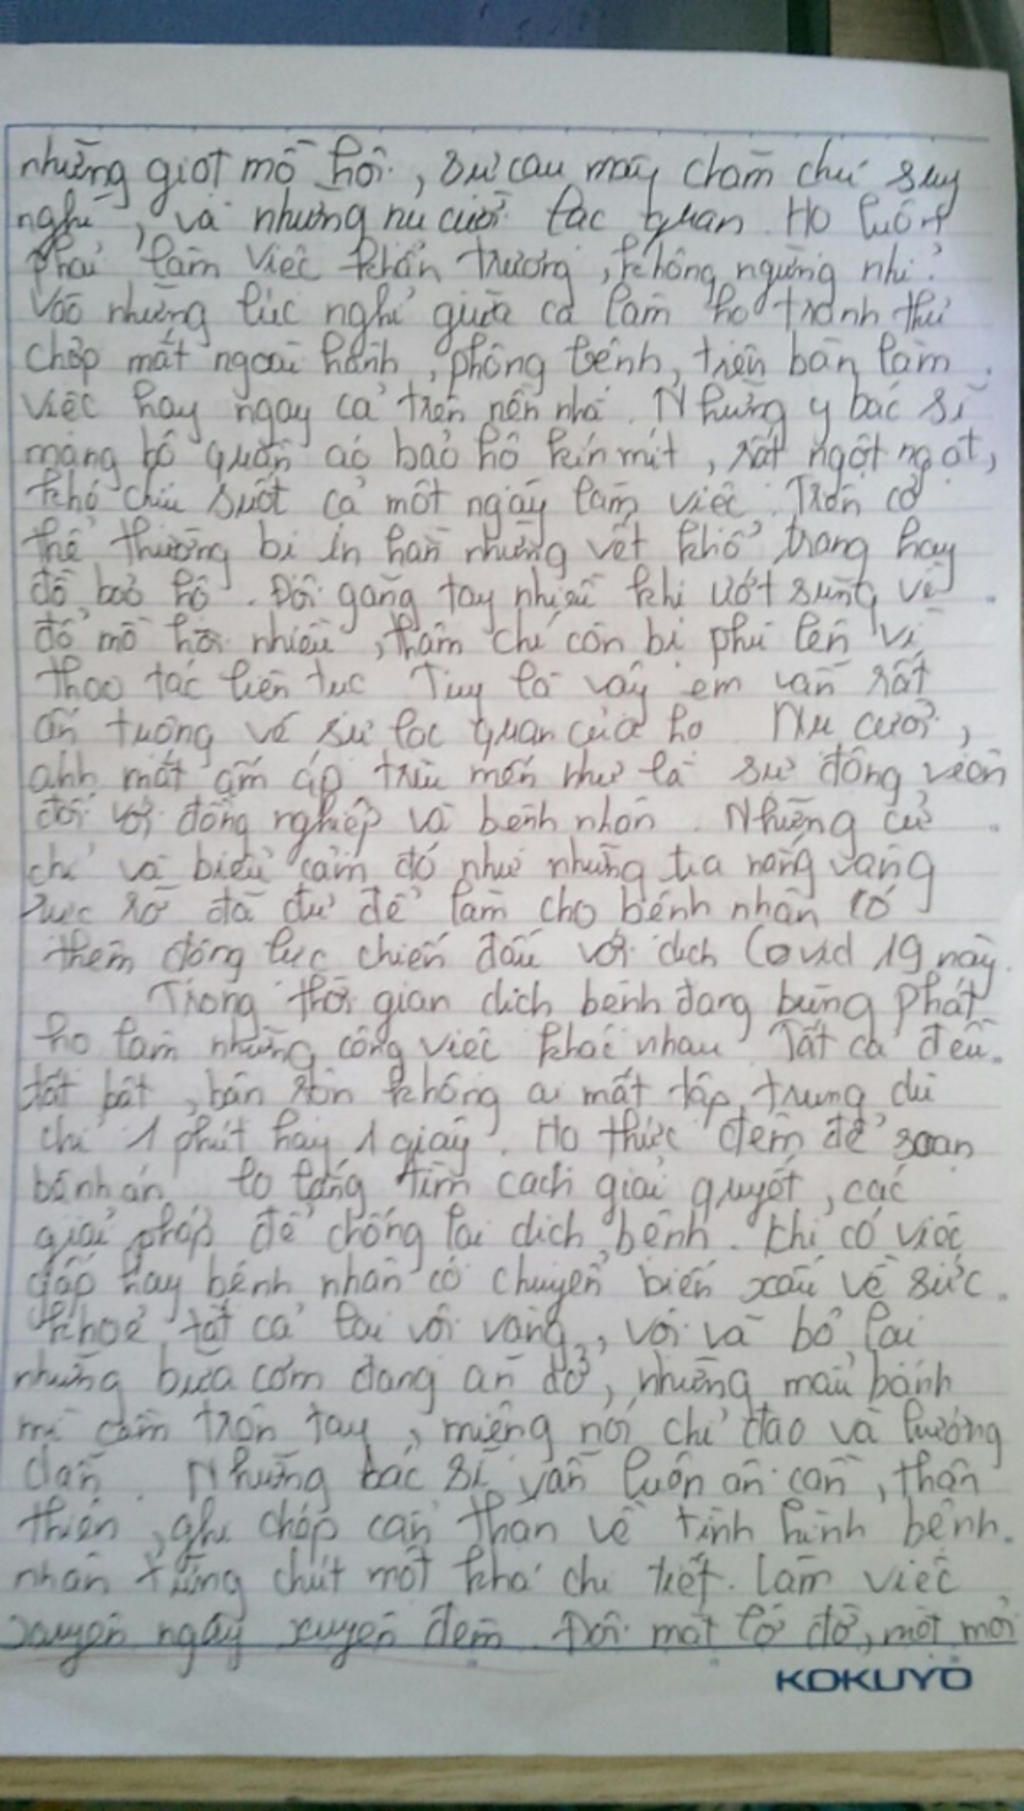 những giọt mồ hôi, sự cau mày chăm chú suy
nghĩ, và những nụ cười lạc quan. Họ luôn
phải làm việc khẩn trương, không ngừng nhỉ.
Vào những lúc nghỉ giữa ca làm họ tranh thủ
chợp mắt ngoài hành, phòng bệnh, trên bàn làm
việc hay ngay cả trên nền nhà. Những y bác sĩ
mang bộ quần áo bảo hộ kín mít, rất ngột ngạt,
khó chịu suốt cả một ngày làm việc. Trên cơ
thể thường bị in hằn những vết khẩu trang hay
đồ bảo hộ. Đôi găng tay nhiều khi ướt sũng vì
đổ mồ hôi nhiều, thậm chí còn bị phù lên vì
thao tác liên tục. Tuy là vậy em vẫn rất
ấn tượng về sự lạc quan của họ. Nụ cười,
ánh mắt ấm áp trìu mến như là sự động viên
đối với đồng nghiệp và bệnh nhân. Những cử
chỉ và biểu cảm đó như những tia nắng vàng
rực rỡ đã đủ để làm cho bệnh nhân có
thêm động lực chiến đấu với dịch Covid 19 này.
Trong thời gian dịch bệnh đang bùng phát
họ làm những công việc khác nhau. Tất cả đều
tất bật, bận rộn không ai mất tập trung dù
chỉ 1 phút hay 1 giây. Họ thức đêm để soạn
bệnh án, lo lắng tìm cách giải quyết, các
giải pháp để chống lại dịch bệnh. Khi có việc
gấp hay bệnh nhân có chuyển biến xấu về sức
khoẻ tất cả lại vội vàng, vội vã bỏ lại
những bữa cơm đang ăn dở, những mẩu bánh
mì cầm trên tay, miệng nói chỉ đạo và hướng
dẫn. Những bác sĩ vẫn luôn ân cần, thân
thiện, ghi chép cẩn thận về tình hình bệnh
nhân từng chút một khá chi tiết. Làm việc
xuyên ngày xuyên đêm. Đôi mắt lờ đờ, mệt mỏi
KOKUYO